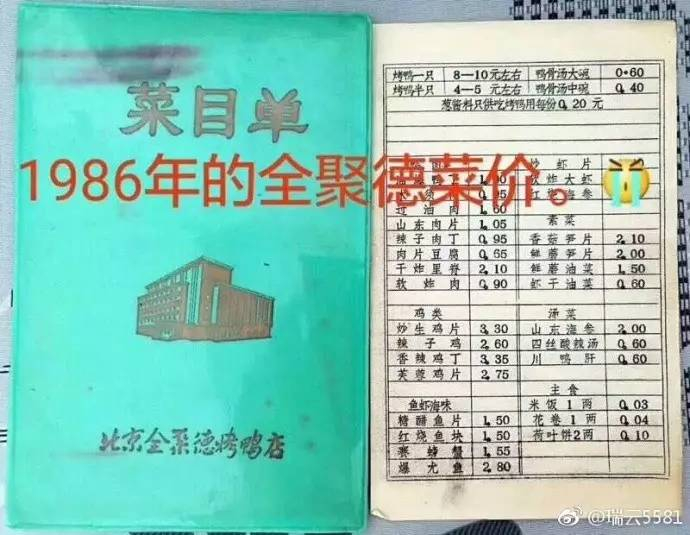 菜目单
北京全聚德烤鸭店
1986年的全聚德菜价。
烤鸭一只 8—10元左右 鸭骨汤大碗 0.60
烤鸭半只 4—5元左右 鸭骨汤中碗 0.40
葱酱料只供吃烤鸭用每份0.20元
炒虾片
软炸大虾
过油肉 1.60
山东肉片 1.05
素菜
辣子肉丁 0.95 香菇笋片 2.10
肉片豆腐 0.65 鲜蘑笋片 2.00
干炸里脊 2.10 鲜蘑油菜 1.50
软炸肉 0.90 虾干油菜 0.60
鸡类 汤菜
炒生鸡片 3.30 山东海参 2.00
辣子鸡 2.60 四丝酸辣汤 0.60
香辣鸡丁 3.35 川鸭肝 0.60
芙蓉鸡片 2.75
主食
鱼虾海味 米饭1两 0.03
糖醋鱼片 1.50 花卷1两 0.04
红烧鱼块 1.50 荷叶饼2两 0.10
赛螃蟹 1.55
爆尤鱼 2.80
@瑞云5581